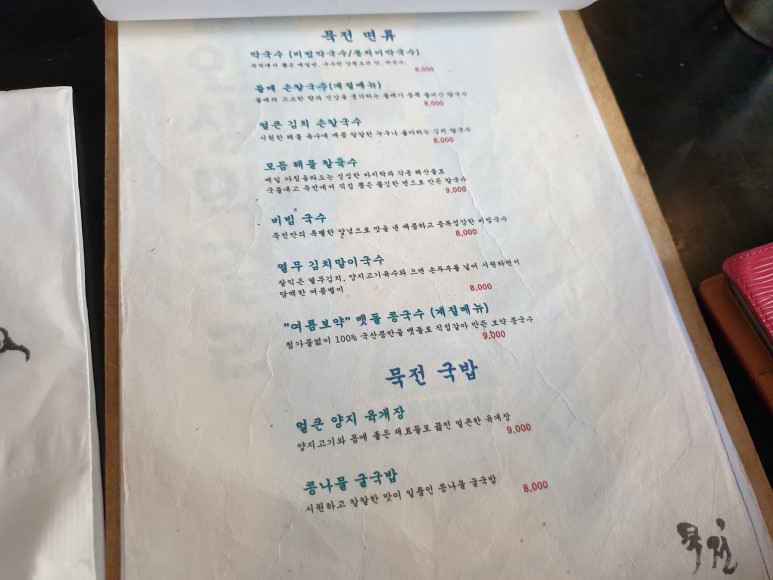 묵전 면류
막국수 (비빔막국수/동치미막국수)
묵전에서 뽑은 메밀면, 구수한 강원도의 맛, 막국수.
8,000
들깨 손칼국수(계절메뉴)
들깨의 고소한 향과 건강을 생각하는 들깨가 듬뿍 들어간 칼국수
8,000
얼큰 김치 손칼국수
시원한 해물 육수에 매콤 칼칼한 누구나 좋아하는 김치 칼국수
8,000
모듬 해물 칼국수
매일 아침올라오는 싱싱한 바지락과 각종 해산물로
국물내고 묵전에서 직접 뽑은 쫄깃한 면으로 만든 칼국수
9,000
비빔 국수
묵전만의 특별한 양념으로 맛을 낸 매콤하고 중독성강한 비빔국수
8,000
열무 김치말이국수
잘익은 열무김치, 양지고기육수와 으깬 손두부를 넣어 시원하면서
담백한 여름별미
8,000
"여름보약" 맷돌 콩국수 (계절메뉴)
첨가물없이 100% 국산콩만을 맷돌로 직접갈아 만든 보약 콩국수
9,000
묵전 국밥
얼큰 양지 육개장
양지고기와 몸에 좋은 재료들로 끓인 얼큰한 육개장
9,000
콩나물 굴국밥
시원하고 칼칼한 맛이 일품인 콩나물 굴국밥
8,000
묵전